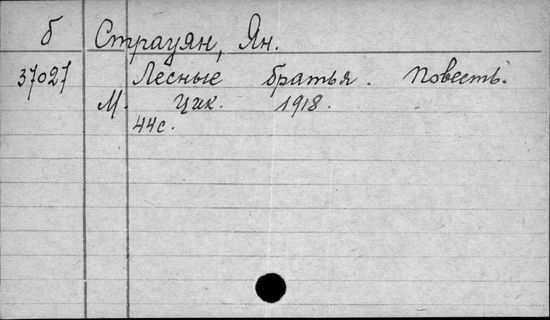 б Страуян, Ян.
37027 Лесные братья. Повесть.
М. Цик. 1918.
44с.